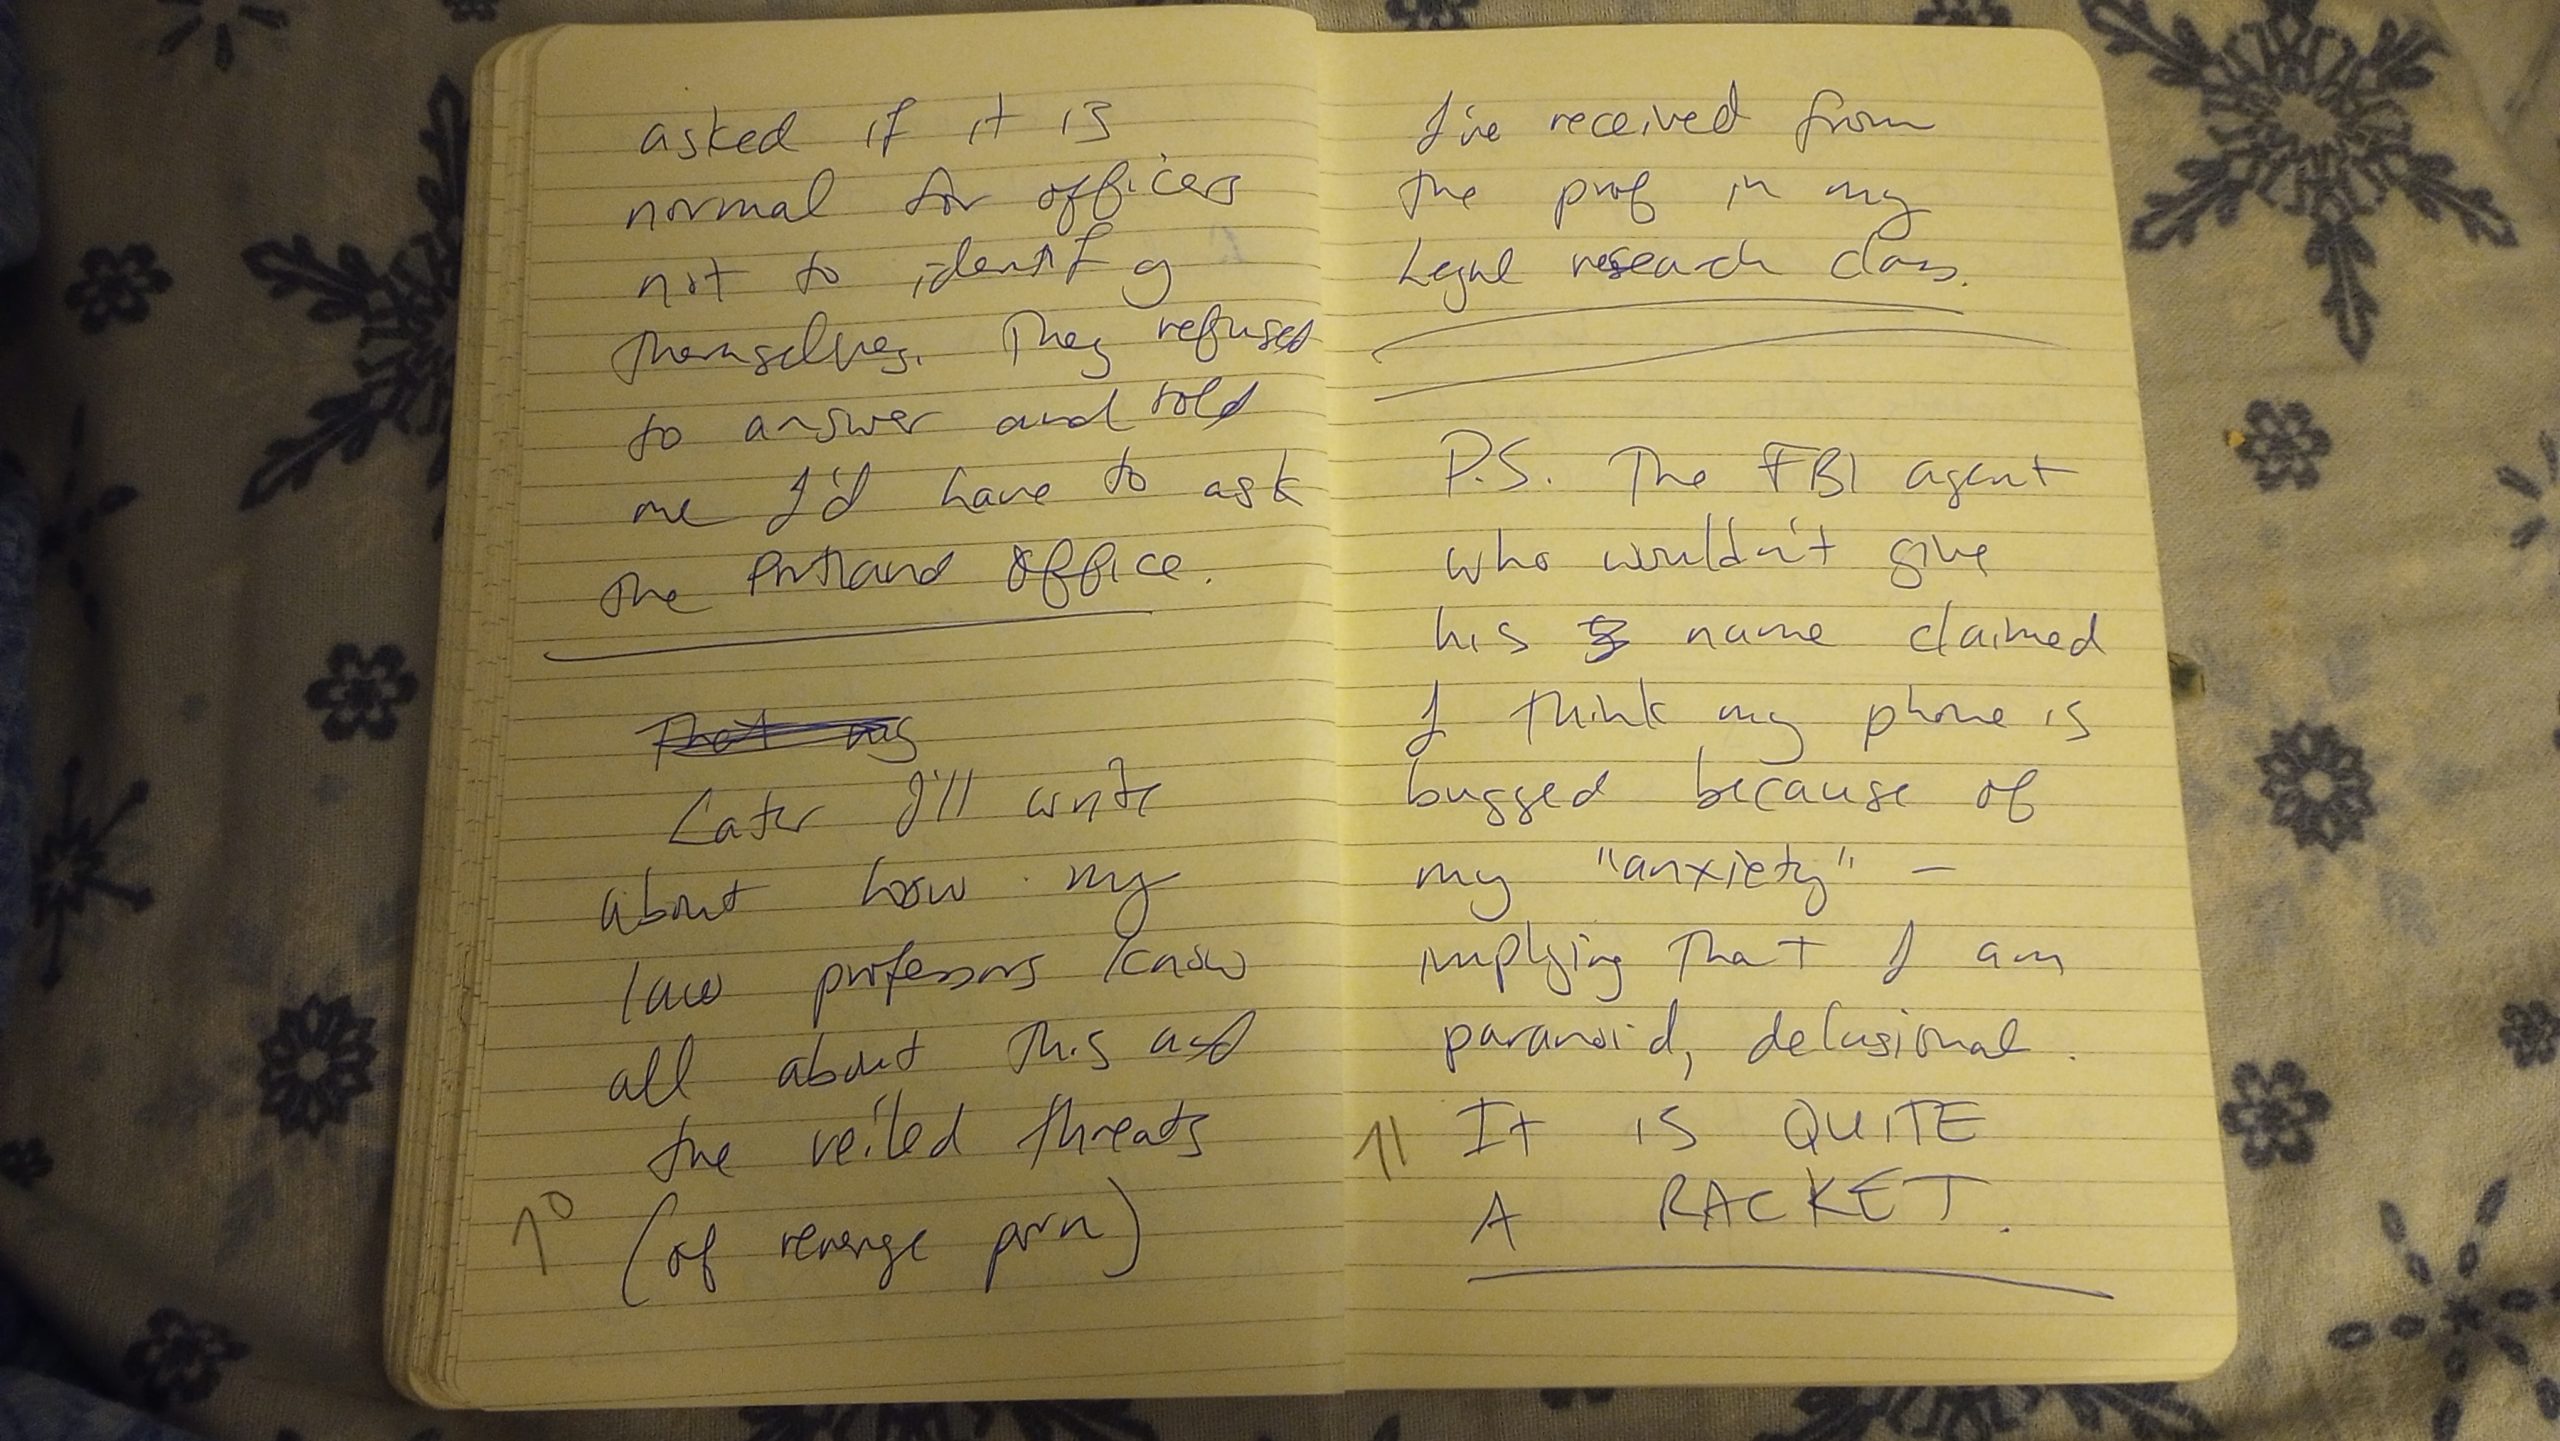 asked if it is
normal for officers
not to identify
themselves. They refused
to answer and told
me I'd have to ask
the Portland office.
That my
Later I'll write
about how my
law professors know
all about this and
the veiled threats
(of revenge porn)
10
I've received from
the prof in my
Legal research class.
P.S. The FBI agent
who wouldn't give
his name claimed
I think my phone is
bugged because of
my "anxiety" –
implying that I am
paranoid, delusional.
It is QUITE
A RACKET.
11